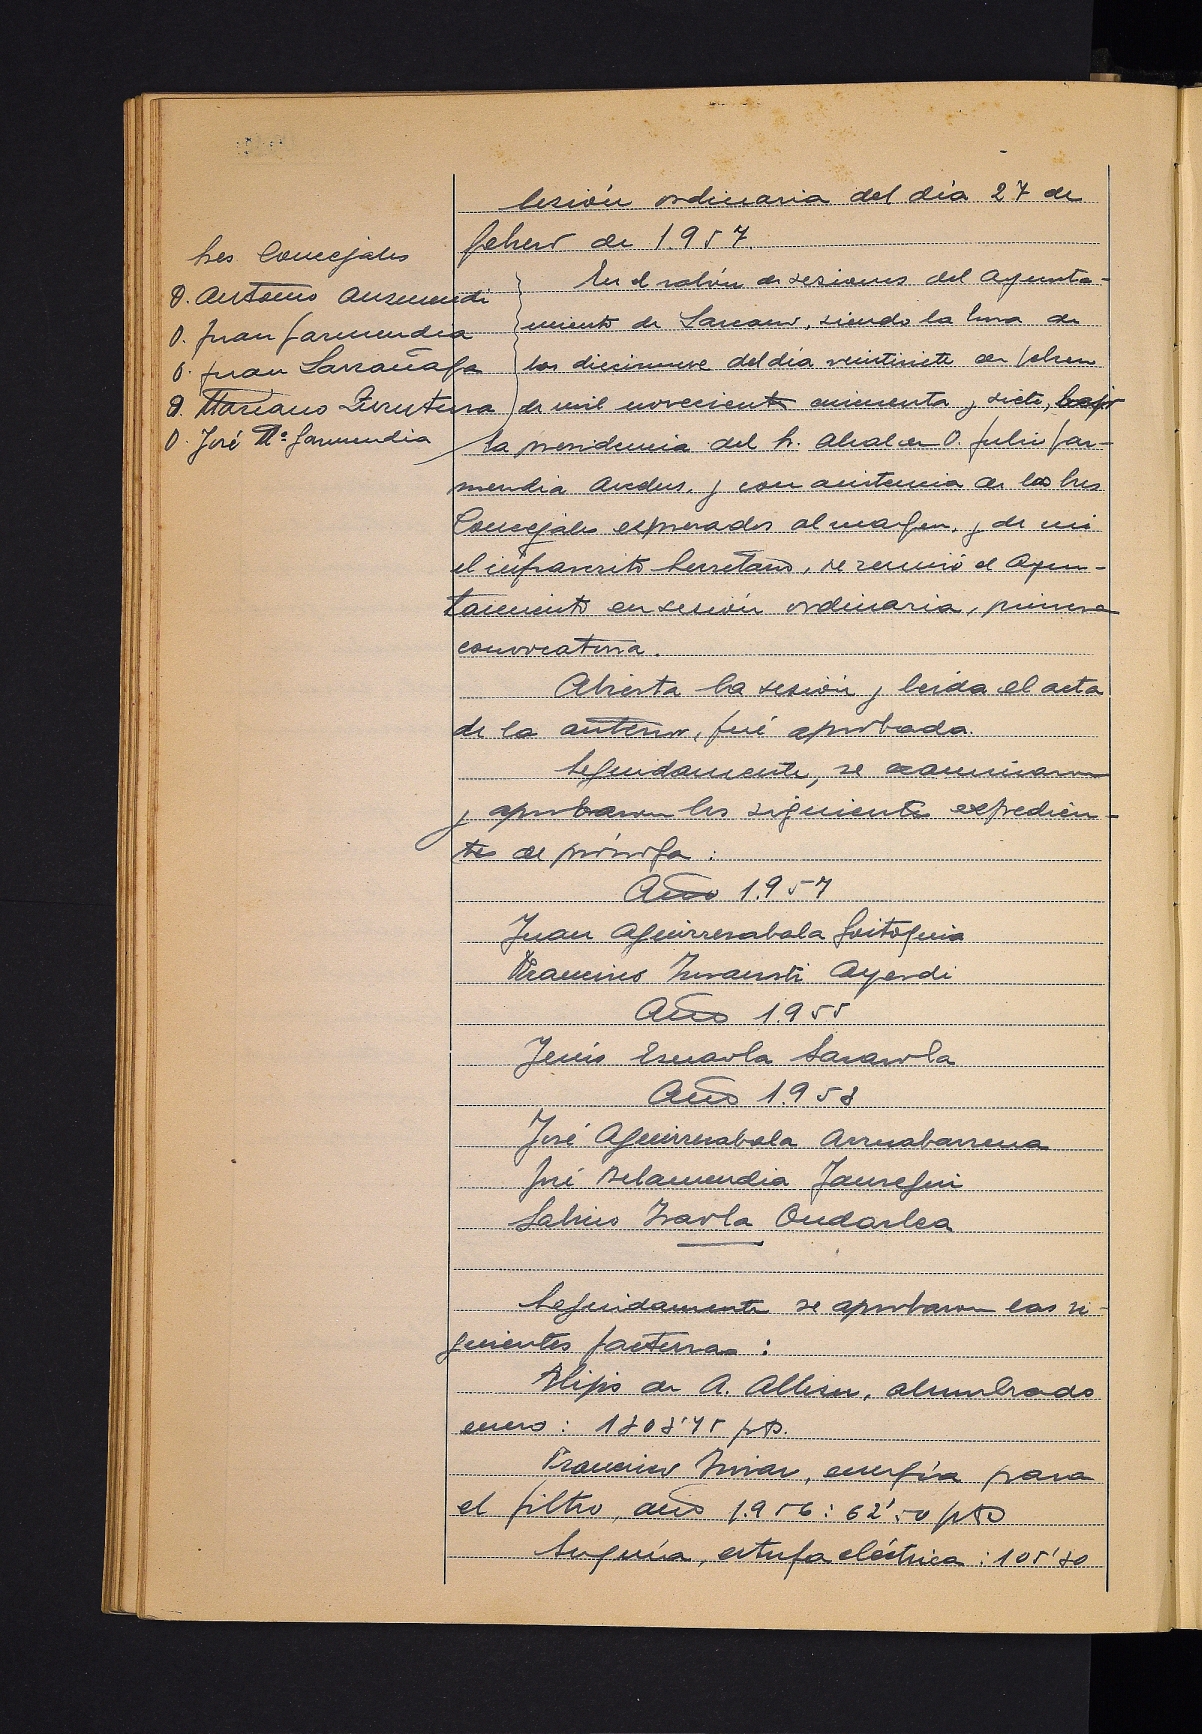 Sesión ordinaria del día 27 de
febrero de 1.957.
Sres Concejales
D. Antonio Auzmendi
D. Juan Garmendia
D. Juan Larrañaga
D. Mariano Zurutuza
D. José Mª Garmendia
En el salón de sesiones del Ayunta-
miento de Lazcano, siendo la hora de
las diecinueve del día veintisiete de febrero
de mil novecientos cincuenta y siete, bajo
la presidencia del Sr. Alcalde D. Julio Gar-
mendia, y con asistencia de los Sres
Concejales expresados al margen, y de mi
el infrascrito Secretario, se reunió el Ayun-
tamiento en sesión ordinaria, primera
convocatoria.
Abierta la sesión y leida el acta
de la anterior, fué aprobada.
Seguidamente, se examinaron
y aprobaron los siguientes expedien-
tes de prórroga:
Año 1.957
Juan Aguirrezabala Goitoguia
Francisco Imaz Ayerdi
Año 1.955
Jesús Esnaola Sarasola
Año 1.958
José Aguirrezabala Arruabarrena
José Telamendia Jauregui
Sabino Iraola Oudarlea
Seguidamente se aprobaron las si-
guientes facturas:
Hijos de A. Albisu, alumbrado
enero: 1808'75 pts.
Francisco, energía para
el filtro, año 1.956: 62'50 pts
, estufa eléctrica: 105'80